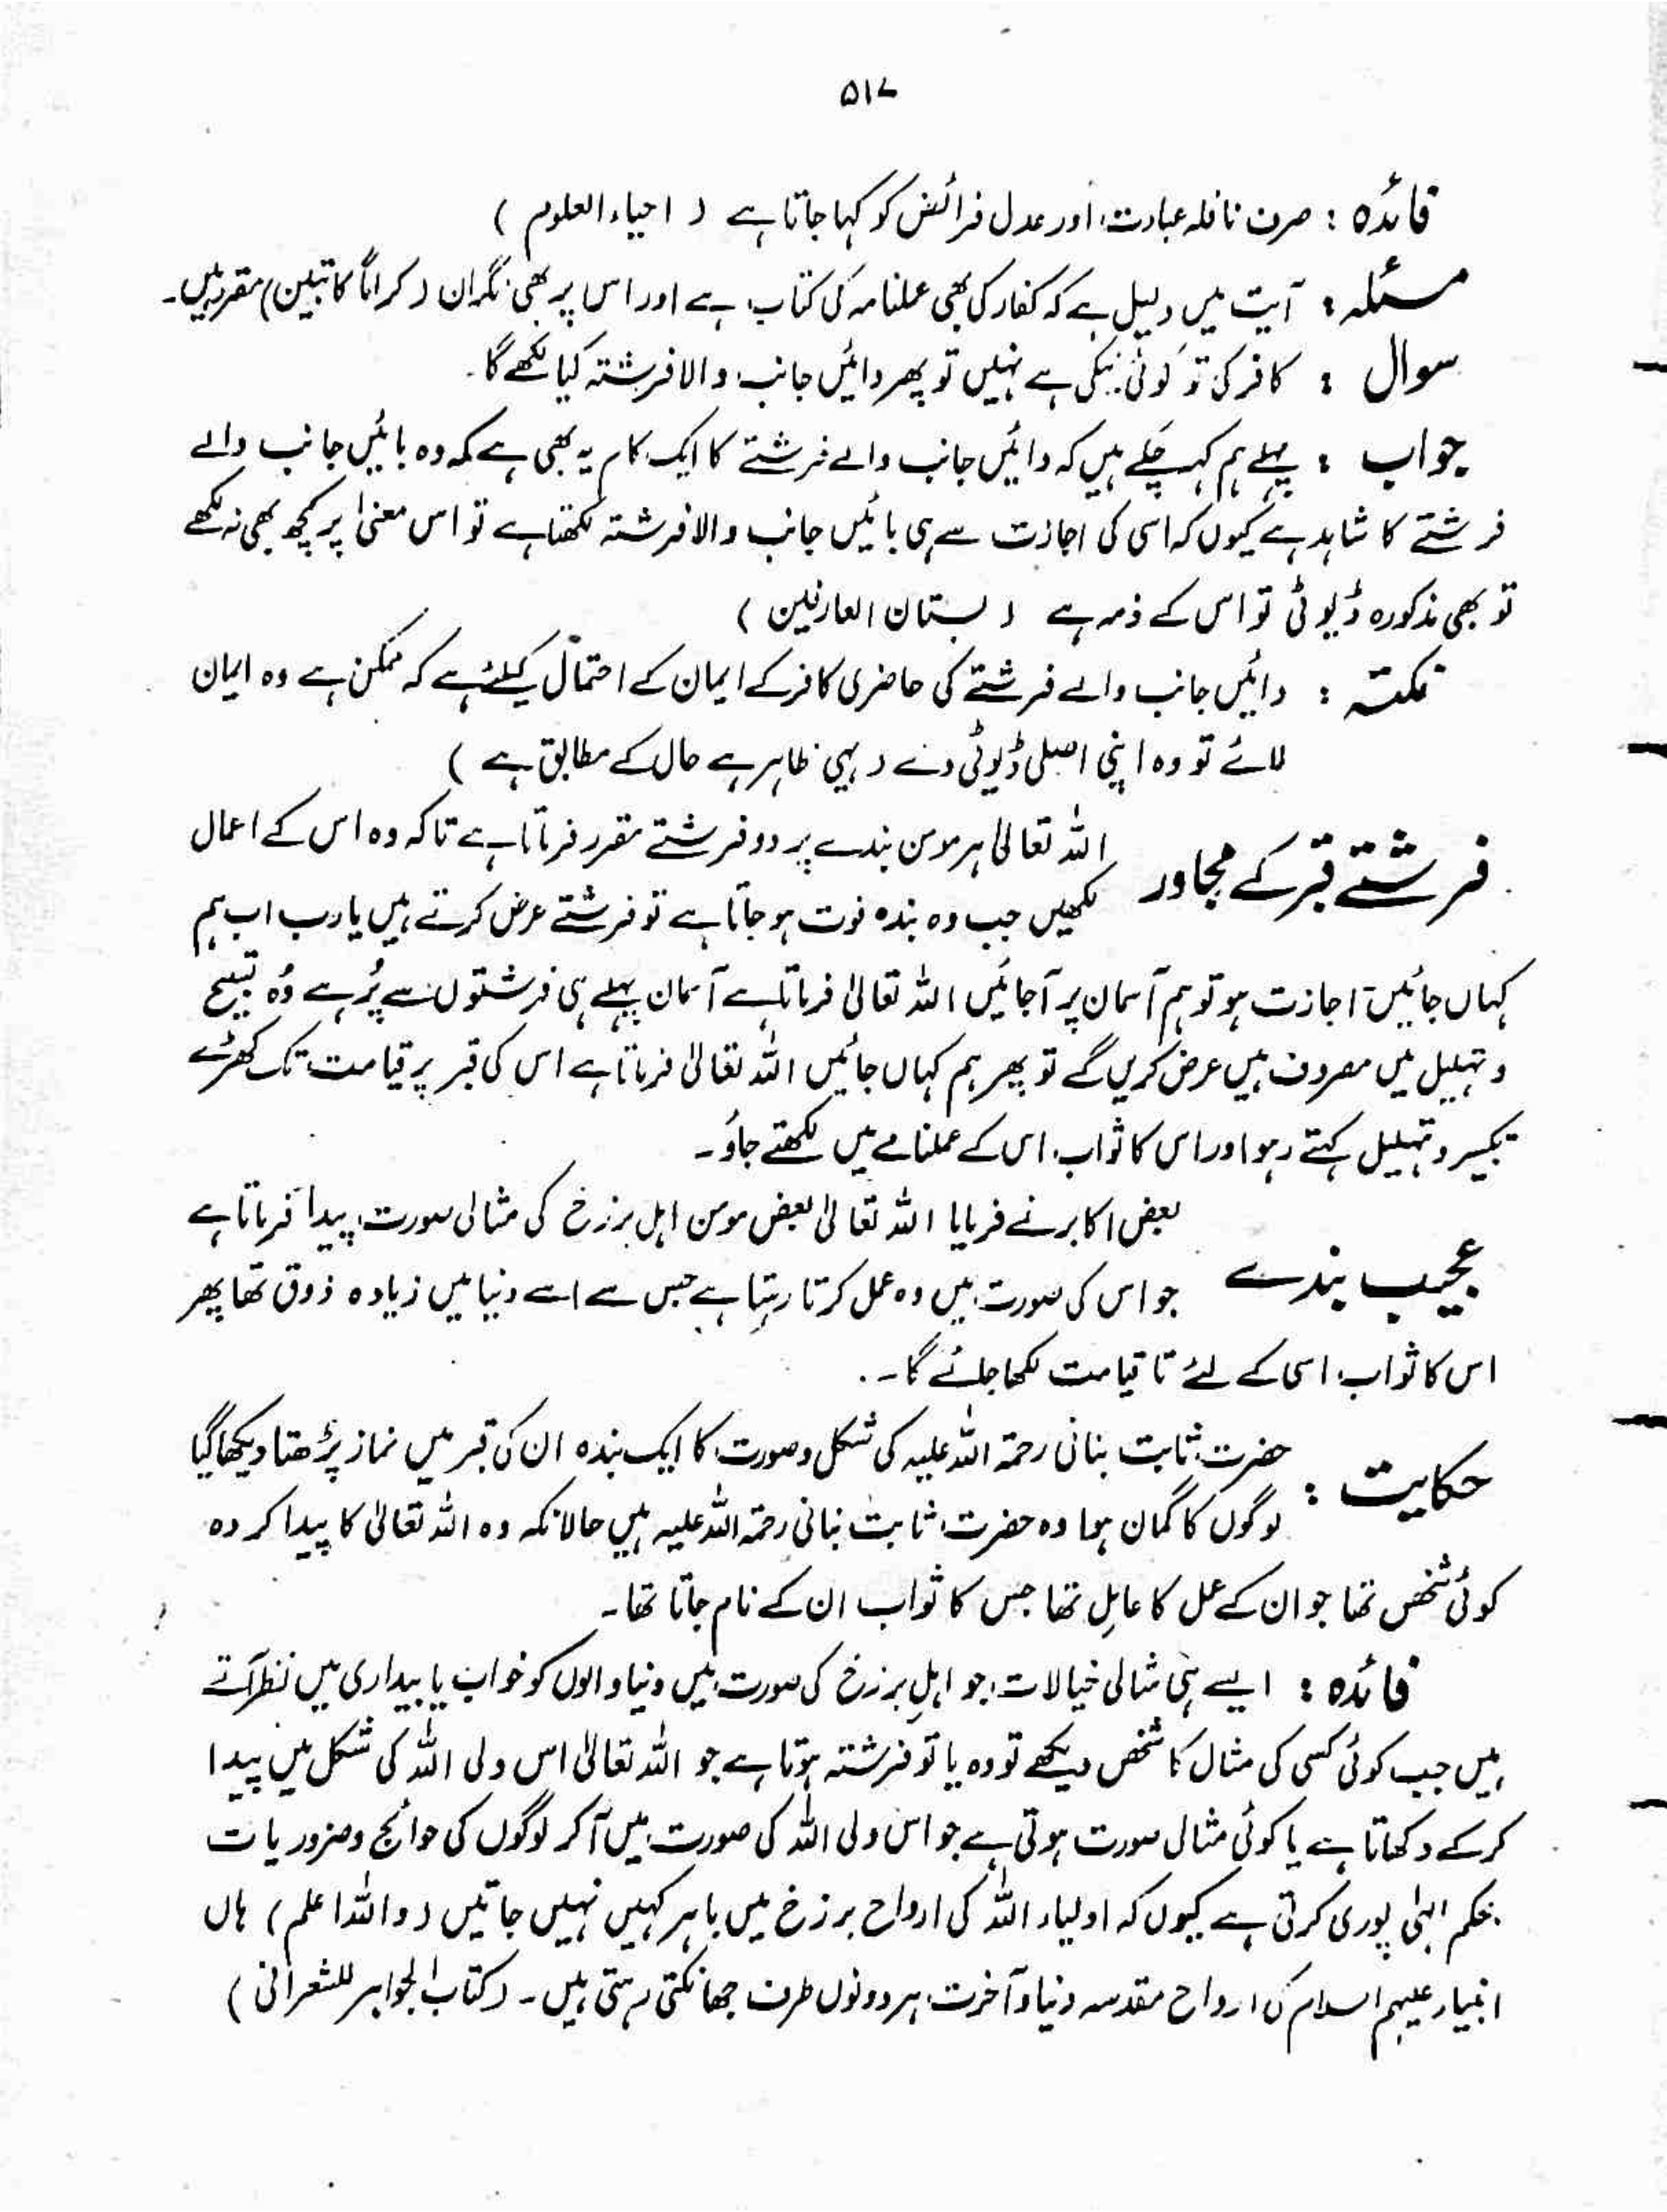 ۵۱۷
فائدہ : صرف نافلہ عبادت اور عدل فرائض کو کہا جاتا ہے ( احیاء العلوم )
مسئلہ : آیت میں دلیل ہے کہ کفار کی بھی عملنامہ کی کتاب ہے اور اس پر بھی نگران ( کراماً کاتبین ) مقرر ہیں۔
سوال : کافر کی تو کوئی نیکی ہے نہیں تو پھر دائیں جانب والا فرشتہ کیا لکھے گا۔
جواب : پہلے ہم کہہ چکے ہیں کہ دائیں جانب والے فرشتے کا ایک کام یہ بھی ہے کہ وہ بائیں جانب والے
فرشتے کا شاہد ہے کیوں کہ اسی کی اجازت سے ہی بائیں جانب والا فرشتہ لکھتا ہے تو اس معنیٰ پر کچھ بھی نہ لکھے
تو بھی مذکورہ ڈیوٹی تو اس کے ذمہ ہے ( بستان العارفین )
نکتہ : دائیں جانب والے فرشتے کی حاضری کافر کے ایمان کے احتمال کیلئے ہے کہ ممکن ہے وہ ایمان
لائے تو وہ اپنی اصلی ڈیوٹی دے ( یہی ظاہر ہے حال کے مطابق ہے )
فرشتے قبر کے مجاور اللہ تعالیٰ ہر مومن بندے پر دو فرشتے مقرر فرماتا ہے تاکہ وہ اس کے اعمال
لکھیں جب وہ بندہ فوت ہو جاتا ہے تو فرشتے عرض کرتے ہیں یا رب اب ہم
کہاں جائیں اجازت ہو تو ہم آسمان پر آ جائیں اللہ تعالیٰ فرماتا ہے آسمان پہلے ہی فرشتوں سے پُر ہے وُہ تسبیح
و تہلیل میں مصروف ہیں عرض کریں گے تو پھر ہم کہاں جائیں اللہ تعالیٰ فرماتا ہے اس کی قبر پر قیامت تک کھڑے
تکبیر و تہلیل کہتے رہو اور اس کا ثواب اس کے عملنامے میں لکھتے جاؤ۔
عجیب بندے بعض اکابر نے فرمایا اللہ تعالیٰ بعض مومن اہل برزخ کی مثالی صورت پیدا فرماتا ہے
جو اس کی صورت میں وہ عمل کرتا رہتا ہے جس سے اسے دنیا میں زیادہ ذوق تھا پھر
اس کا ثواب اسی کے لئے تا قیامت لکھا جائے گا۔
حکایت : حضرت ثابت بنانی رحمۃ اللہ علیہ کی شکل و صورت کا ایک بندہ ان کی قبر میں نماز پڑھتا دیکھا گیا
لوگوں کا گمان ہوا وہ حضرت ثابت بنانی رحمۃ اللہ علیہ ہیں حالانکہ وہ اللہ تعالیٰ کا پیدا کردہ
کوئی شخص تھا جو ان کے عمل کا عامِل تھا جس کا ثواب ان کے نام جاتا تھا۔
فائدہ : ایسے ہی مثالی خیالات جو اہلِ برزخ کی صورت میں دنیا والوں کو خواب یا بیداری میں نظر آتے
ہیں جب کوئی کسی کی مثال کا شخص دیکھے تو وہ یا تو فرشتہ ہوتا ہے جو اللہ تعالیٰ اس ولی اللہ کی شکل میں پیدا
کر کے دکھاتا ہے یا کوئی مثالی صورت ہوتی ہے جو اس ولی اللہ کی صورت میں آ کر لوگوں کی حوائج و ضروریات
بحکم الہٰی پوری کرتی ہے کیوں کہ اولیاء اللہ کی ارواح برزخ میں باہر کہیں نہیں جاتیں ( واللہ اعلم ) ہاں
انبیاء علیہم السلام کی ارواح مقدسہ دنیا و آخرت ہر دونوں طرف جھانکتی رہتی ہیں۔ ( کتاب الجواہر للشعرانی )